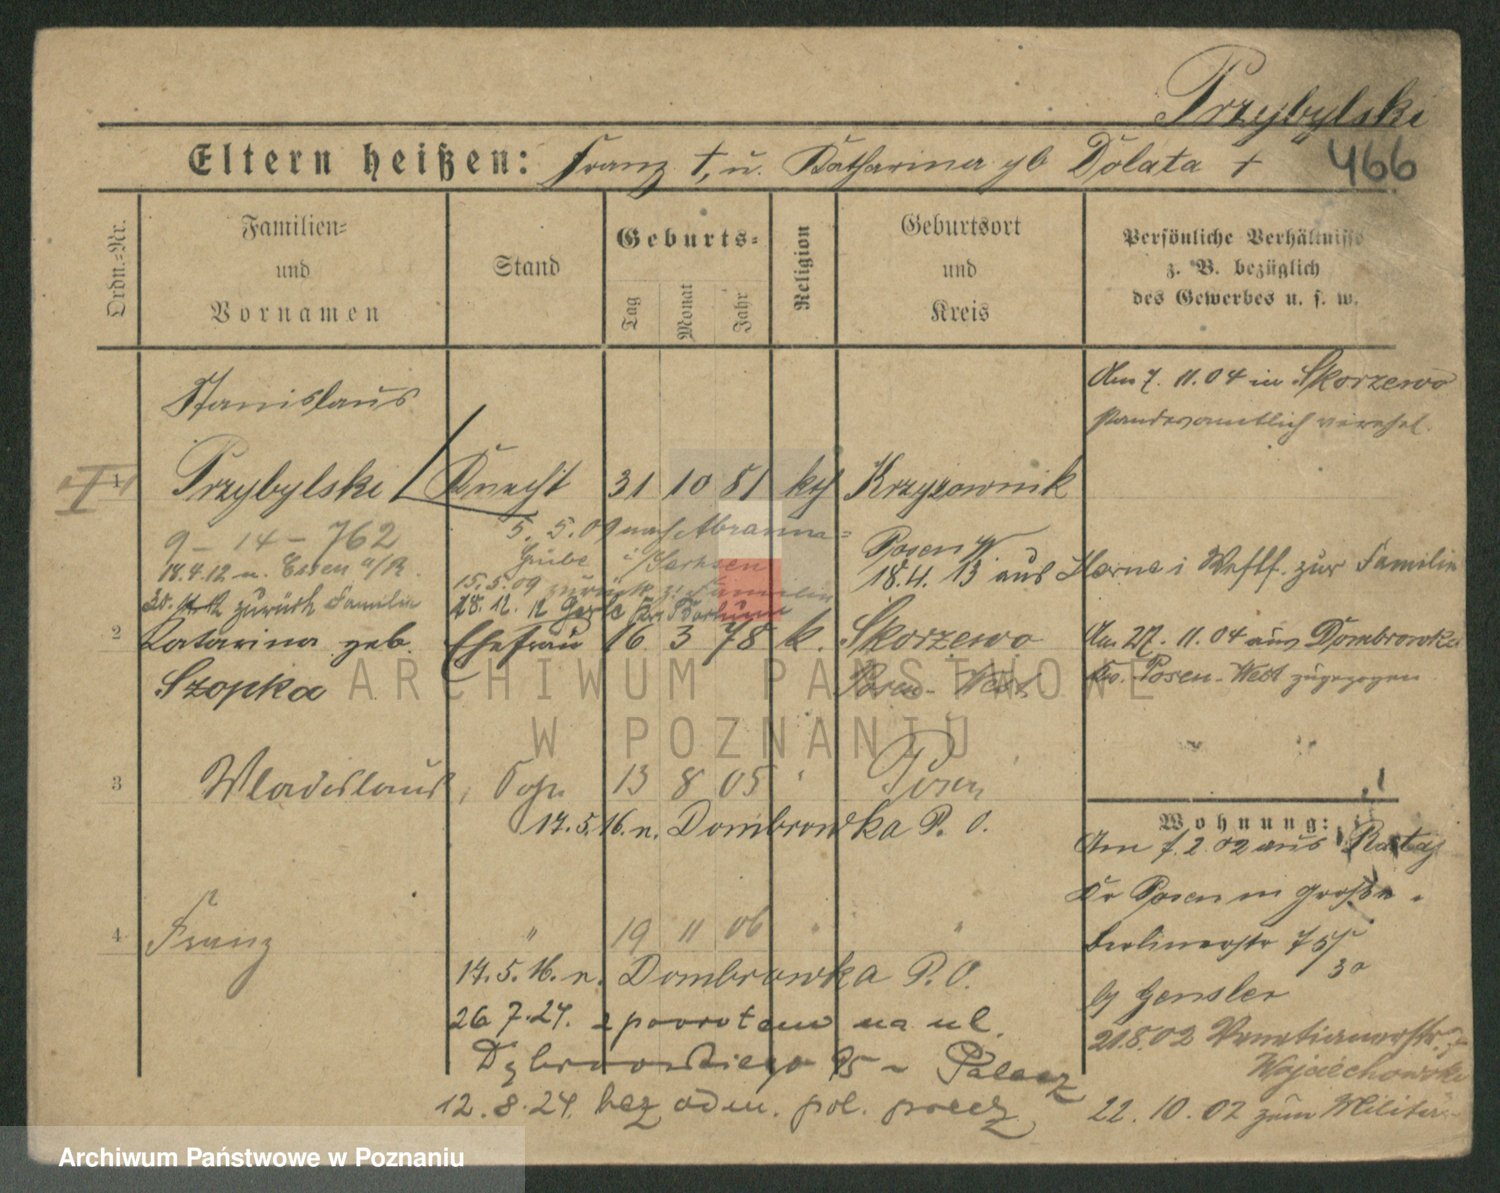 Przybylski
466
Eltern heißen: Franz †, u. Katharina gb Dolata †
Ordn.-Nr.
Familien- und Vornamen
Stand
Geburts-
Tag
Monat
Jahr
Religion
Geburtsort und Kreis
Persönliche Verhältnisse z. B. bezüglich des Gewerbes u. s. w.
Stanislaus
Am 7. 11. 04 in Skorzewo
standesamtlich verehel.
1 Przybylski Knecht 31 10 81 kth Krzyzownik
I
9 - 14 - 762
5. 5. 09 nach Abranna=
Grube i/Sachsen
Posen W.
18.4.12 n. Essen a/R.
15.5.09 zurück z. Familie
18.4.13 aus Herne i Westf. zur Familie
zurück Familie
28. 12. 12
2 Katarina geb. Ehefrau 16. 3 78 k. Skorzewo
Szopka
Posen-West
Am 27. 11. 04 aus Dombrowka
Kr. Posen-West zugezogen
3 Wladislaus, Sohn 13 8 05 " Posen
17.5.16. n. Dombrowka P. O.
Wohnung:
Am 7. 2. 02 aus Rataj
Kr Posen in Große
Berlinerstr 75
30
by Gensler
21.8.02 Venetianerstr.
Wojciechowski
22. 10. 02 zum Militär
4 Franz " 19 11 06 " "
17.5.16. n. Dombrowka P. O.
26 7.24. z powrotem na ul.
Dąbrowskiego 95 - Palacz
12. 8. 24. bez odm. pol. przez
ARCHIWUM PAŃSTWOWE
W POZNANIU
Archiwum Państwowe w Poznaniu